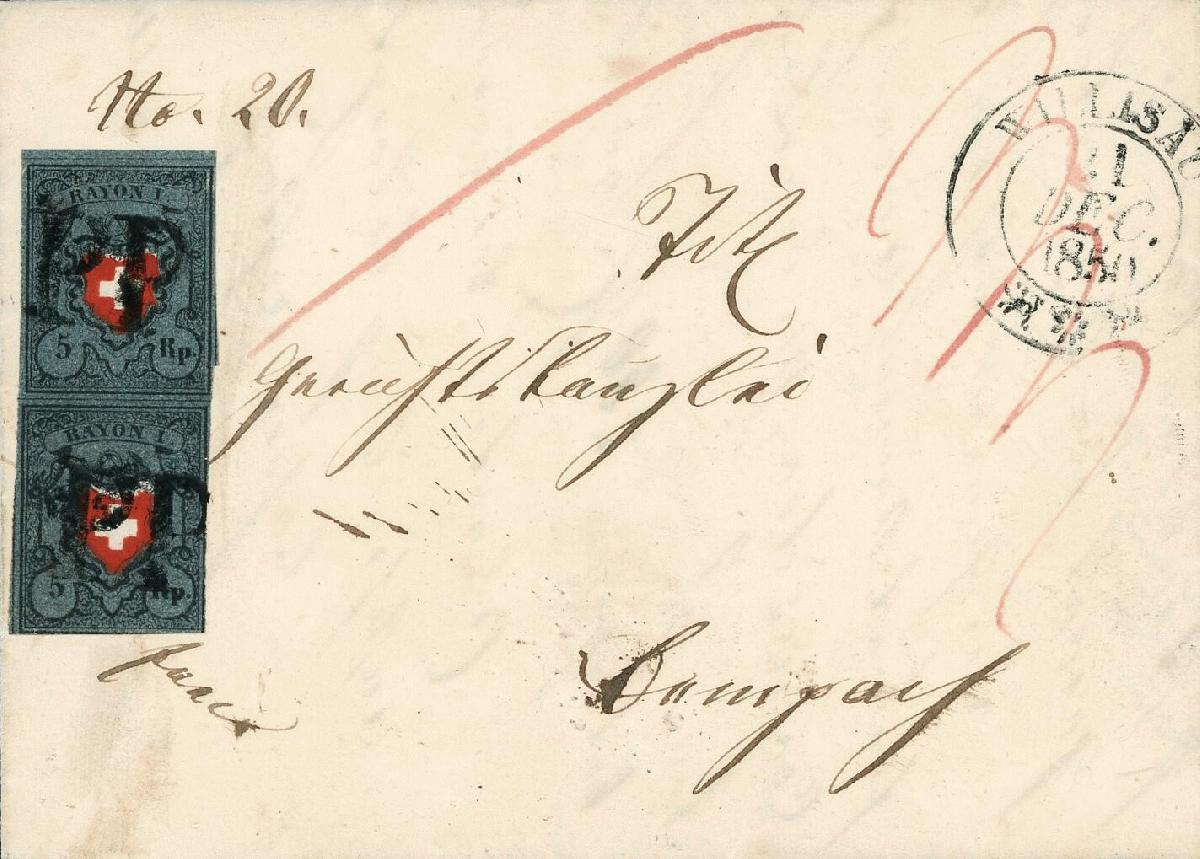 No. 20.
RAYON I
5 Rp.
P.P.
RAYON I
5 Rp.
P.P.
WILLISAU
DEC.
1850
Tit
Gerichtskanzlei
Sempach
franco